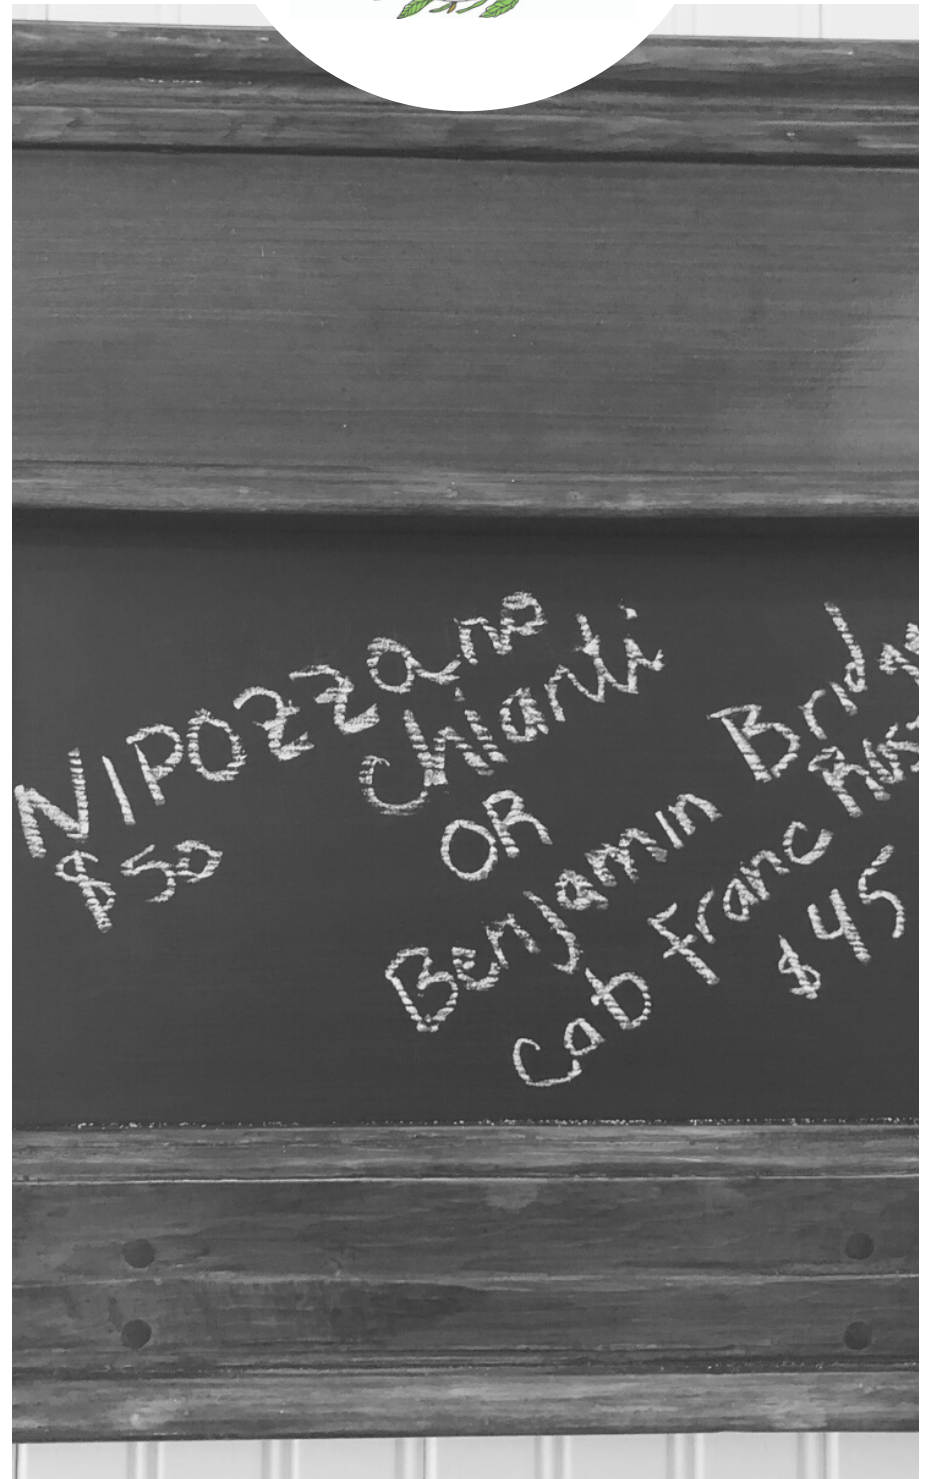 NIPOZZano
Chianti
$50
OR
Benjamin
Cab Franc
$45